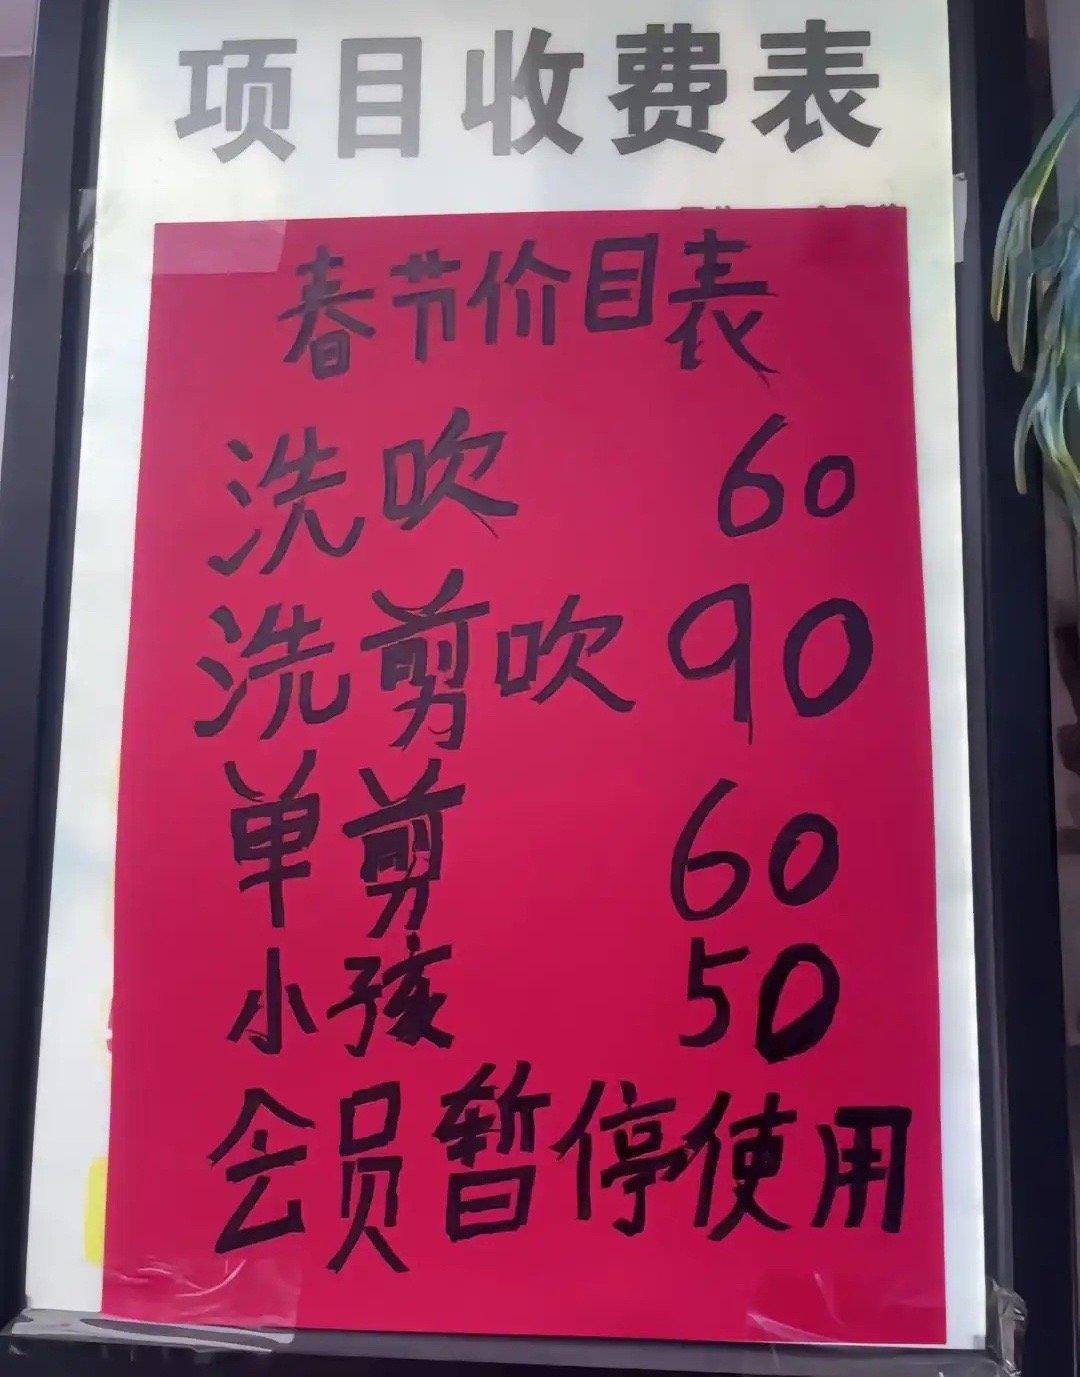 项目收费表
春节价目表
洗吹 60
洗剪吹 90
单剪 60
小孩 50
会员暂停使用